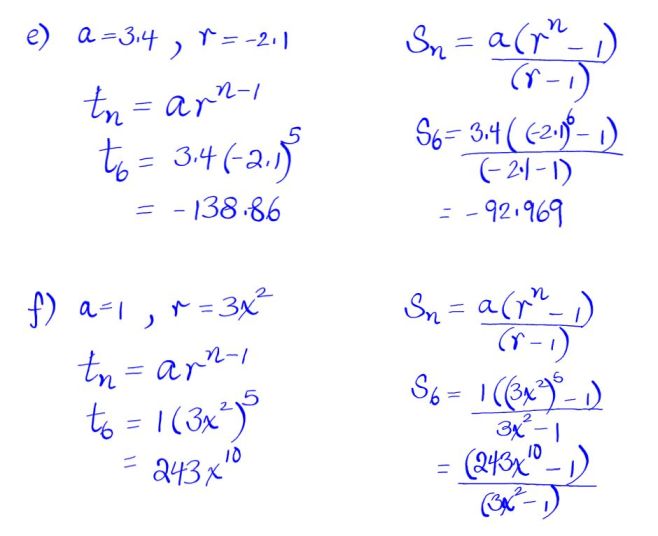 e) a = 3.4 , r = -2.1
tₙ = arⁿ⁻¹
t₆ = 3.4(-2.1)⁵
= -138.86
Sₙ = a(rⁿ - 1)
(r - 1)
S₆ = 3.4((-2.1)⁶ - 1)
(-2.1 - 1)
= -92.969
f) a = 1 , r = 3x²
tₙ = arⁿ⁻¹
t₆ = 1(3x²)⁵
= 243x¹⁰
Sₙ = a(rⁿ - 1)
(r - 1)
S₆ = 1((3x²)⁵ - 1)
3x² - 1
= (243x¹⁰ - 1)
(3x² - 1)